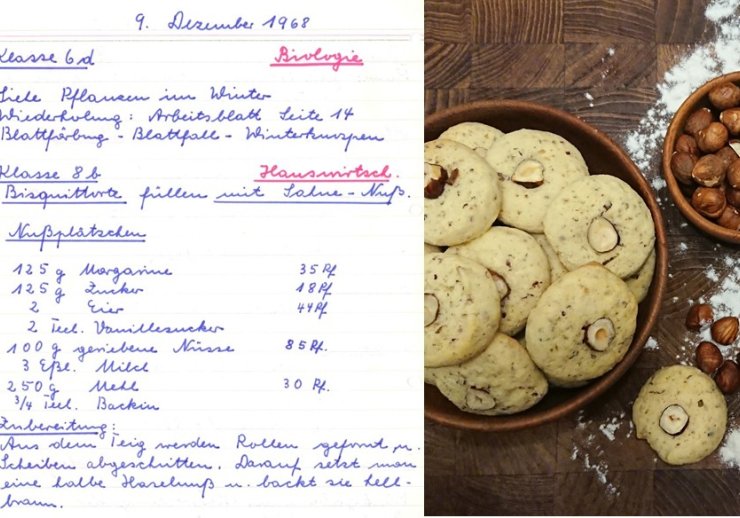 9. Dezember 1968
Klasse 6d Biologie
Siehe Pflanzen im Winter
Wiederholung: Arbeitsblatt Seite 14
Blattfärbung - Blattfall - Winterknospen
Klasse 8b Hauswirtsch.
Bisquittorte füllen mit Sahne-Nuß.
Nußplätzchen
125 g Margarine 35 Pf
125 g Zucker 18 Pf.
2 Eier 44 Pf.
2 Teel. Vanillezucker
100 g geriebene Nüsse 85 Pf.
3 Eßl. Milch
250 g Mehl 30 Pf.
3/4 Teel. Backin
Zubereitung:
Aus dem Teig werden Rollen geformt u.
Scheiben abgeschnitten. Darauf setzt man
eine halbe Haselnuß u. backt sie hell-
braun.